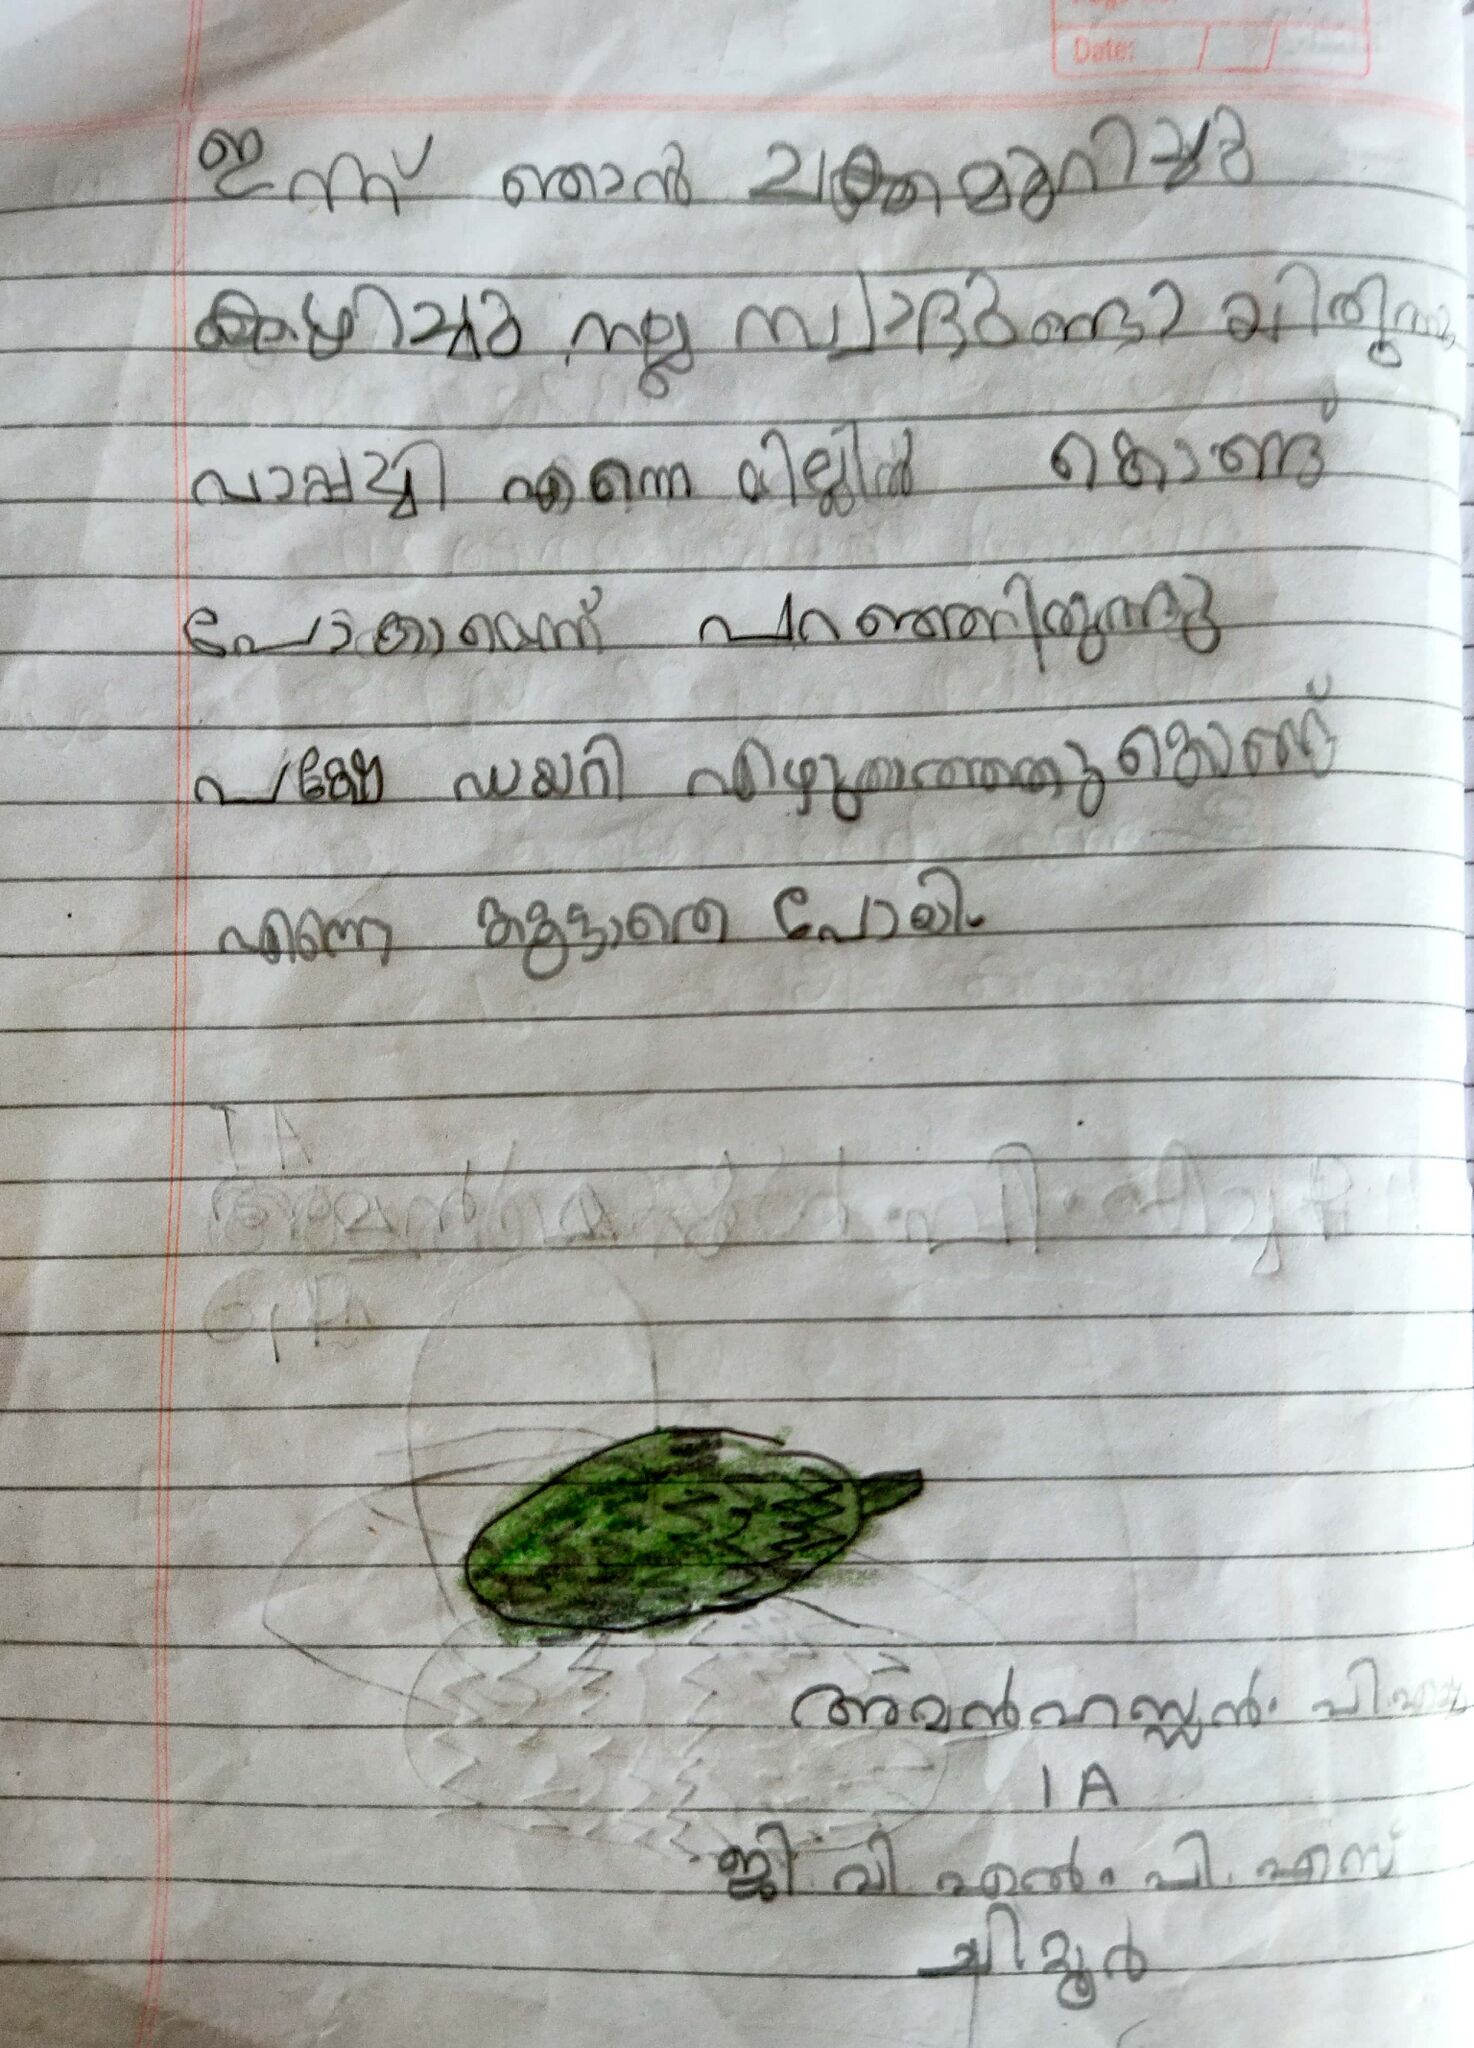 Date:
ഇന്ന് ഞാൻ ചക്ക മുറിച്ചു
കഴിച്ചു നല്ല സ്വാദുണ്ടായിരുന്നു
പാപ്പച്ചി എന്നെ മില്ലിൽ കൊണ്ടു
പോകാമെന്ന് പറഞ്ഞിരുന്നു
പക്ഷേ ഡയറി എഴുതാത്തതുകൊണ്ട്
എന്നെ കൂട്ടാതെ പോയി.
അമൻഹസ്സൻ. പി.എച്ച്
1 A
ജി. വി. എൽ. പി. എസ്
ചിറ്റൂർ